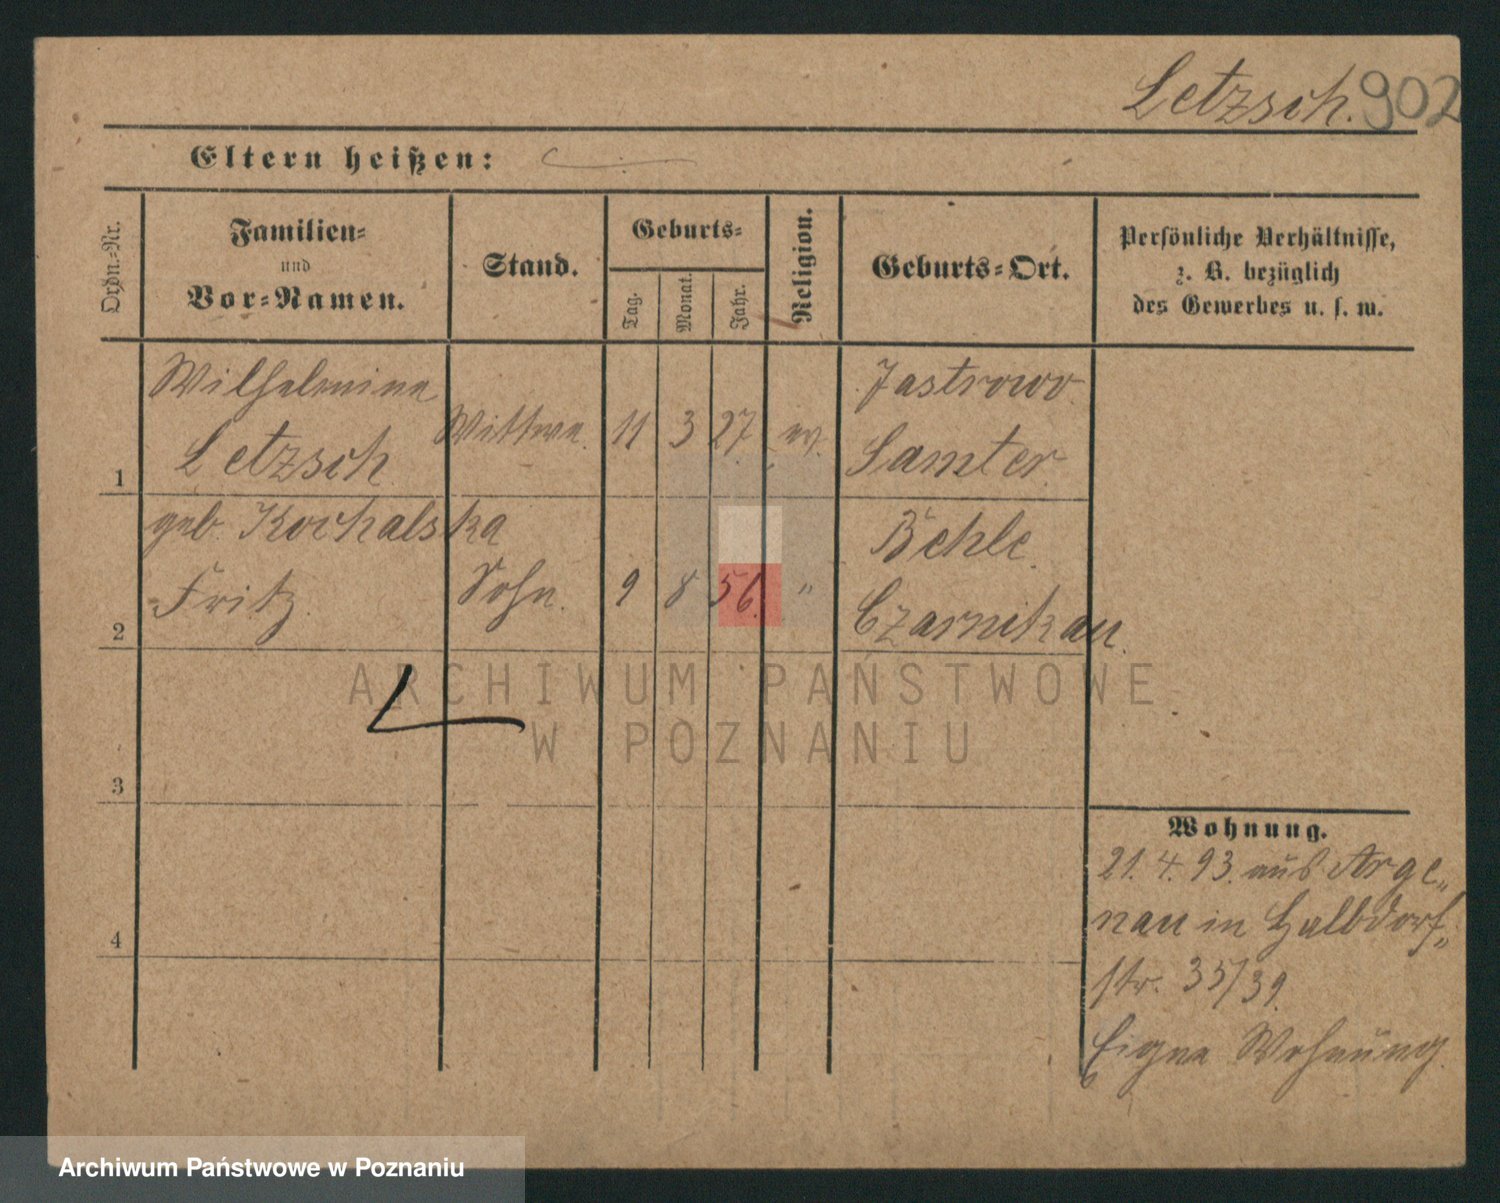 Letzsch. 902
Eltern heißen:
Ordn.-Nr.
Familien-
und
Vor-Namen.
Stand.
Geburts-
Tag.
Monat.
Jahr.
Religion.
Geburts-Ort.
Persönliche Verhältnisse,
z. B. bezüglich
des Gewerbes u. s. w.
1
Wilhelmine
Letzsch
geb. Kochalska
Wittwe.
11
3
27.
ev.
Jastrowo.
Samter.
2
Fritz.
Sohn.
9
8
56.
"
Behle.
Czarnikau.
3
4
Wohnung.
21.4.93. aus Arge„
nau in Halbdorf„
str. 35/39.
Eigne Wohnung.
ARCHIWUM PAŃSTWOWE
W POZNANIU
Archiwum Państwowe w Poznaniu